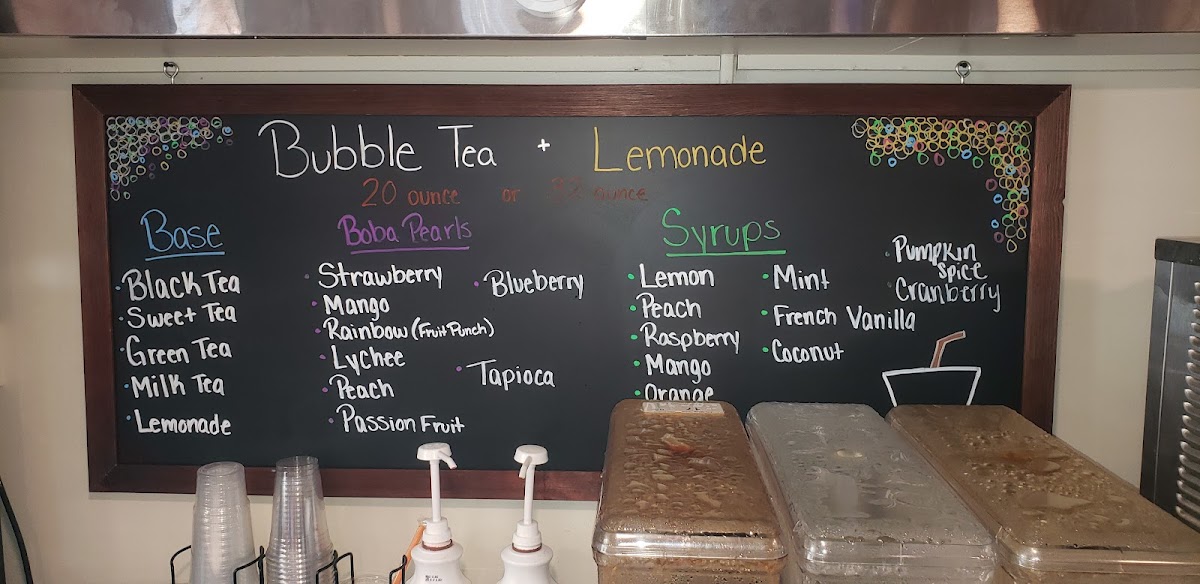 Bubble Tea + Lemonade
20 ounce or 32 ounce
Base
Black Tea
Sweet Tea
Green Tea
Milk Tea
Lemonade
Boba Pearls
Strawberry
Mango
Rainbow (Fruit Punch)
Lychee
Peach
Passion Fruit
Blueberry
Tapioca
Syrups
Lemon
Peach
Raspberry
Mango
Orange
Mint
French Vanilla
Coconut
Pumpkin
Spice
Cranberry